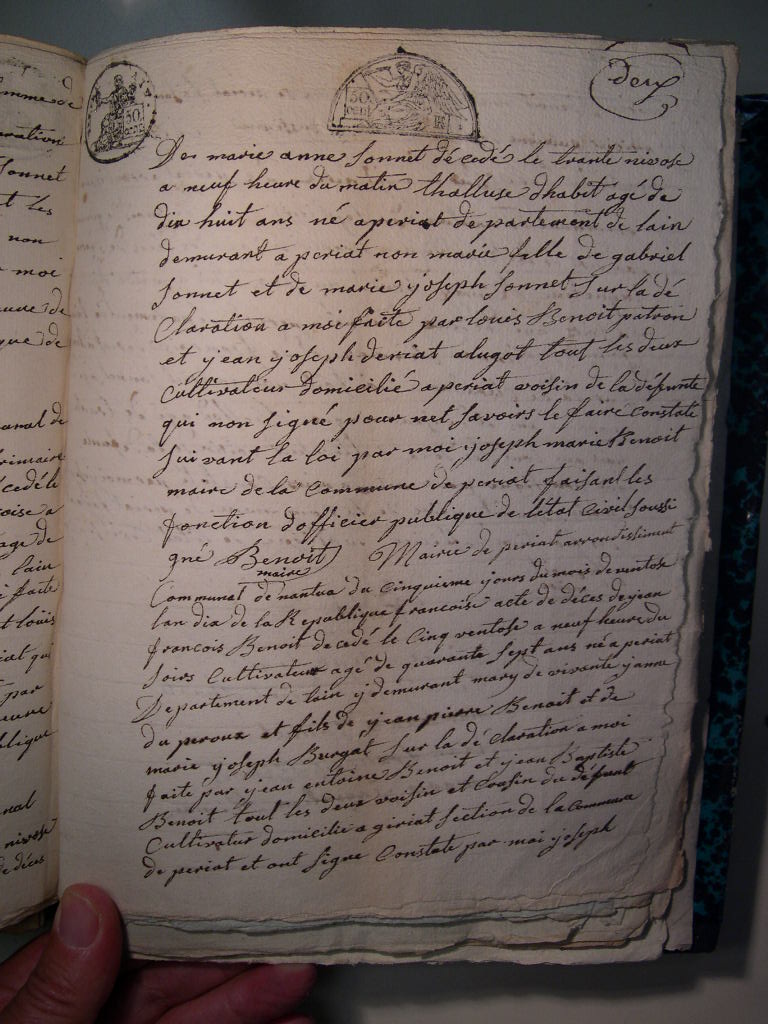 deux
50 cent
De marie anne Sonnet décédé le trante nivose
a neuf heure du matin thalluse dhabit agé de
dix huit ans né a periat departement de lain
demurant a periat non marié fille de gabriel
Sonnet et de marie yoseph Sonnet Sur la dé
Claration a moi faite par louis Benoit patron
et yean yoseph deriat alugot tout les deux
Cultivateur domicilié a periat voisin de la défunte
qui non Signé pour net Savoirs le faire Constaté
Suivant la loi par moi yoseph marie Benoit
maire de la Commune de periat faisant les
fonction dofficier publique de létat Civil Soussi
gné Benoit maire Mairie de periat arrondissiment
Communal de nantua du Cinquieme yours du mois de ventose
lan dix de la Republique francoise acte de déces de yean
francois Benoit decedé le Cinq ventose a neuf heure du
Soirs Cultivateur agé de quarante Sept ans né a periat
Departement de lain y demurant mary de vivante yanne
du peroux et fils de yean pierre Benoit et de
marie yoseph Burgat Sur la dé Claration a moi
faite par yean entoine Benoit et yean Baptiste
Benoit tout les deux voisin et Cousin du défunt
Cultivatur domicilié a giriat Section de la Commune
de periat et ont Signe Constaté par moi yoseph